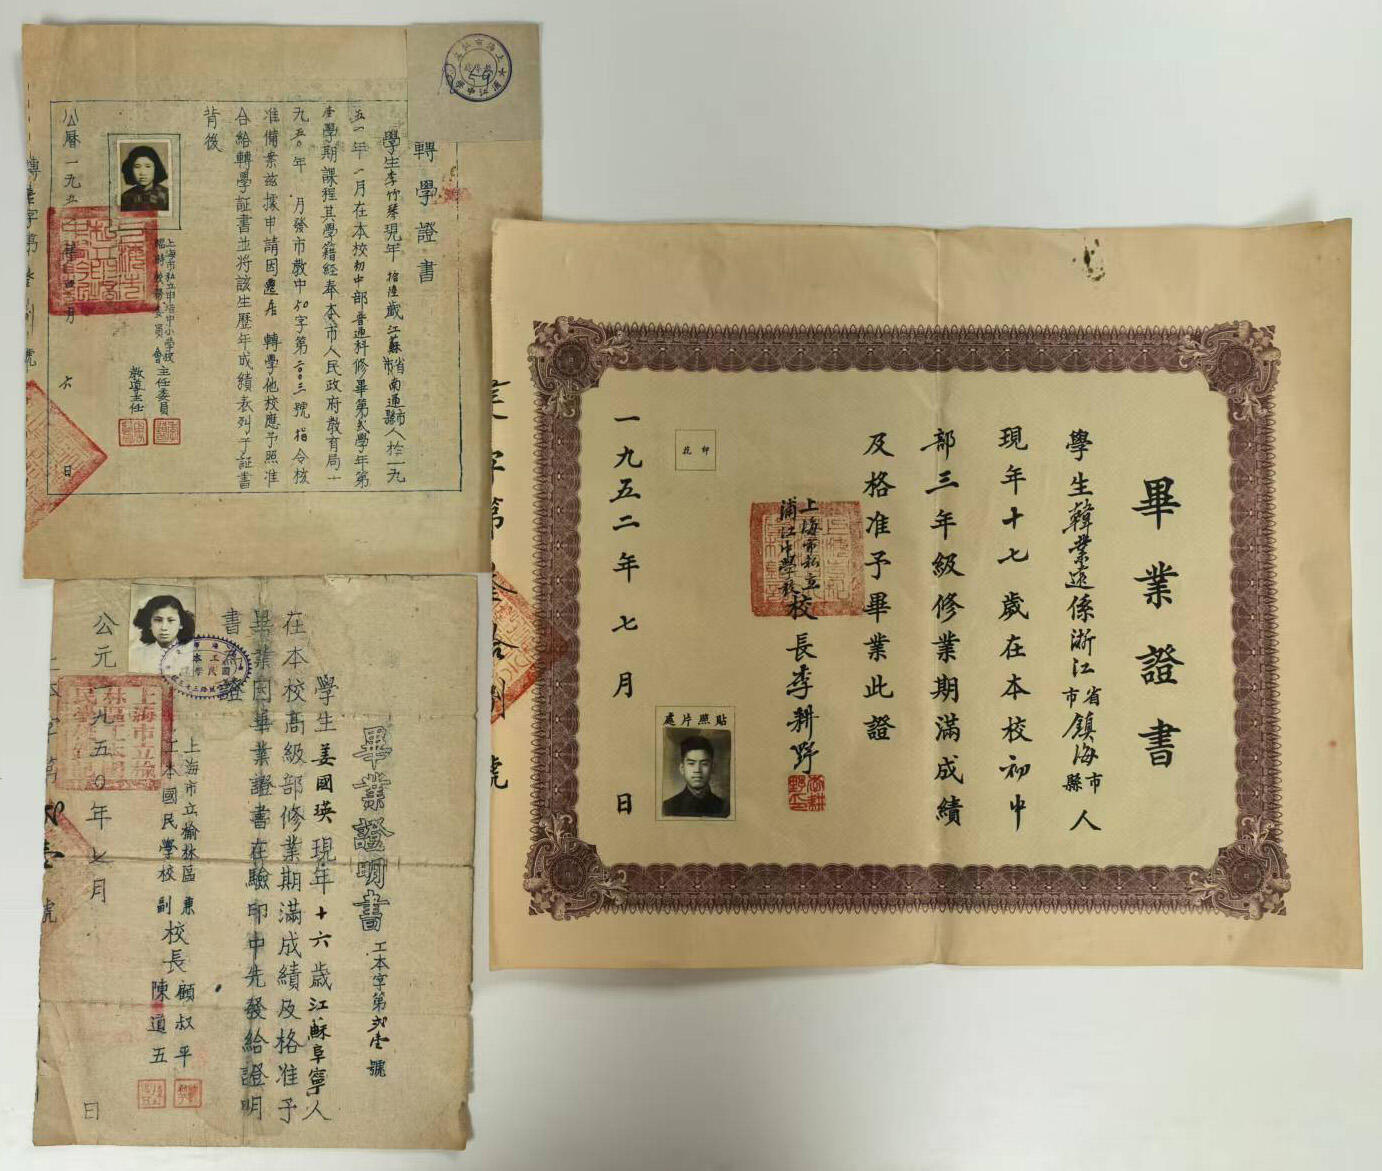 轉學證書
學生李竹琴現年拾陸歲江蘇省市南通市縣人於一九
五一年一月在本校初中部普通科修畢第弍學年第
壹學期課程其學籍經奉本市人民政府教育局一
九五〇年 月發市教中50字第二00三號指令核
准備案茲據申請因遷居轉學他校應予照准
合給轉學証書並將該生歷年成績表列于証書
背後
上海市私立
中小學校主任委員
臨時校務委員會
教導主任
公曆一九五
月 六 日
轉學字第
號
59
畢業證書
學生韓業遠係浙江省市鎮海市縣人
現年十七歲在本校初中
部三年級修業期滿成績
及格准予畢業此證
上海市私立
浦江中學校
校長李耕野
印花
貼照片處
一九五二年七月 日
業字第
號
畢業證明書
工本字第弍壹號
學生姜國瑛現年十六歲江蘇阜寧人
在本校高級部修業期滿成績及格准予
畢業因畢業證書在驗印中先發給證明
書為證
上海市立榆林區東
工本國民學校副校長顧叔平
陳道五
公元一九五〇年七月 日
工本字第
號